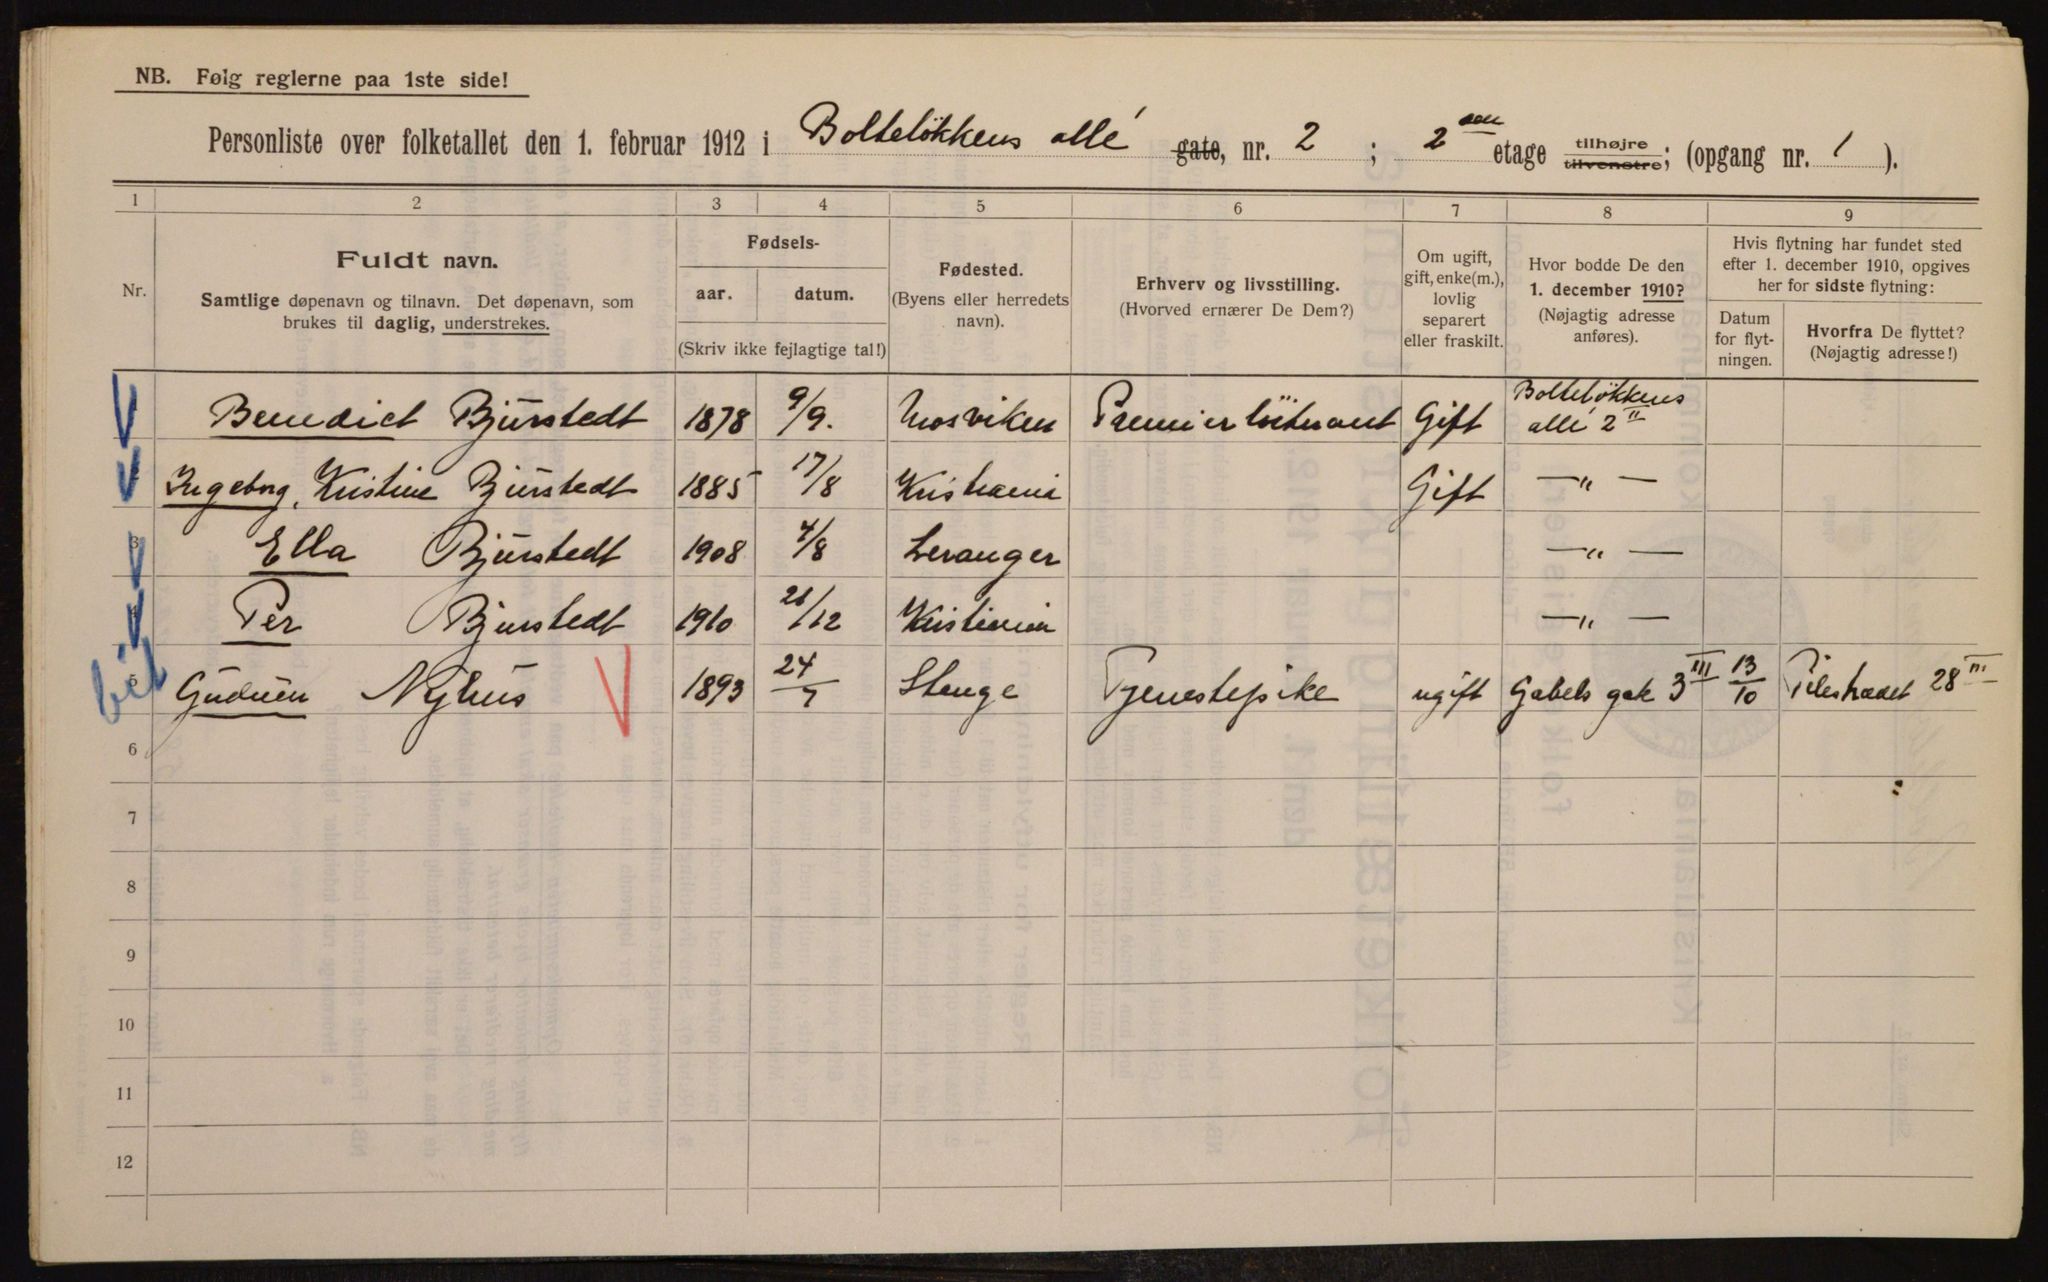 NB. Følg reglerne paa 1ste side!
Personliste over folketallet den 1. februar 1912 i Bolteløkkens allé gate, nr. 2 ; 2den etage tilhøjre tilvenstre; (opgang nr. 1 ).
1 2 3 4 5 6 7 8 9
Nr.
Fuldt navn.
Samtlige døpenavn og tilnavn. Det døpenavn, som
brukes til daglig, understrekes.
Fødsels-
aar. datum.
(Skriv ikke fejlagtige tal!)
Fødested.
(Byens eller herredets
navn).
Erhverv og livsstilling.
(Hvorved ernærer De Dem?)
Om ugift,
gift, enke(m.),
lovlig
separert
eller fraskilt.
Hvor bodde De den
1. december 1910?
(Nøjagtig adresse
anføres).
Hvis flytning har fundet sted
efter 1. december 1910, opgives
her for sidste flytning:
Datum
for flyt-
ningen.
Hvorfra De flyttet?
(Nøjagtig adresse!)
Benedict Bjurstedt 1878 9/9. Mosviken Premierløitnant Gift Bolteløkkens
allé 2 II
Ingeborg, Kristine Bjurstedt 1885 17/8 Kristiania Gift —"—
3 Ella Bjurstedt 1908 4/8 Levanger —"—
Per Bjurstedt 1910 /12 Kristiania —"—
5 Gudrun Nyhus 1893 24/7 Stange Tjenestepike ugift Gabels gate 3 III 13/10 Pilestrædet 28 III
6
7
8
9
10
11
12